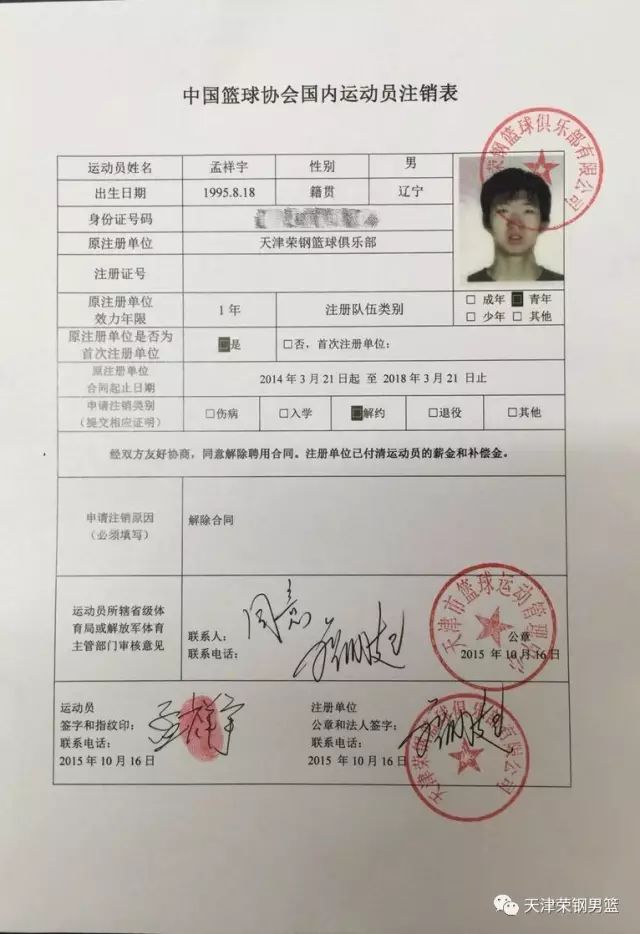 中国篮球协会国内运动员注销表
运动员姓名 孟祥宇 性别 男
出生日期 1995.8.18 籍贯 辽宁
身份证号码
原注册单位 天津荣钢篮球俱乐部
注册证号
原注册单位
效力年限 1 年 注册队伍类别 □ 成年 ■ 青年
□ 少年 □ 其他
原注册单位是否为
首次注册单位 ■是 □否，首次注册单位：
原注册单位
合同起止日期 2014 年 3 月 21 日起 至 2018 年 3 月 21 日止
申请注销类别
（提交相应证明） □伤病 □入学 ■解约 □退役 □其他
经双方友好协商，同意解除聘用合同。注册单位已付清运动员的薪金和补偿金。
申请注销原因
（必须填写） 解除合同
运动员所辖省级体
育局或解放军体育
主管部门审核意见
同意
联系人：
联系电话：
公章
2015 年 10 月 16 日
天津市篮球运动管理中心
运动员
签字和指纹印： 孟祥宇
联系电话：
2015 年 10 月 16 日
注册单位
公章和法人签字：
联系电话：
2015 年 10 月 16 日
天津荣钢篮球俱乐部有限公司
天津荣钢篮球俱乐部有限公司
天津荣钢男篮